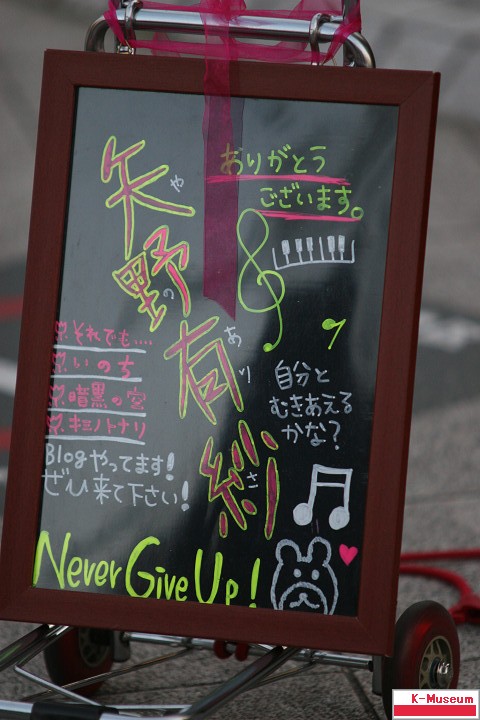 矢野有紗
やのありさ
おりがとう
ございます。
それでも....
いのち
暗黒の空
キミノトナリ
自分と
むきあえる
かな?
Blogやってます!
ぜひ来て下さい!
Never Give Up!
K-Museum